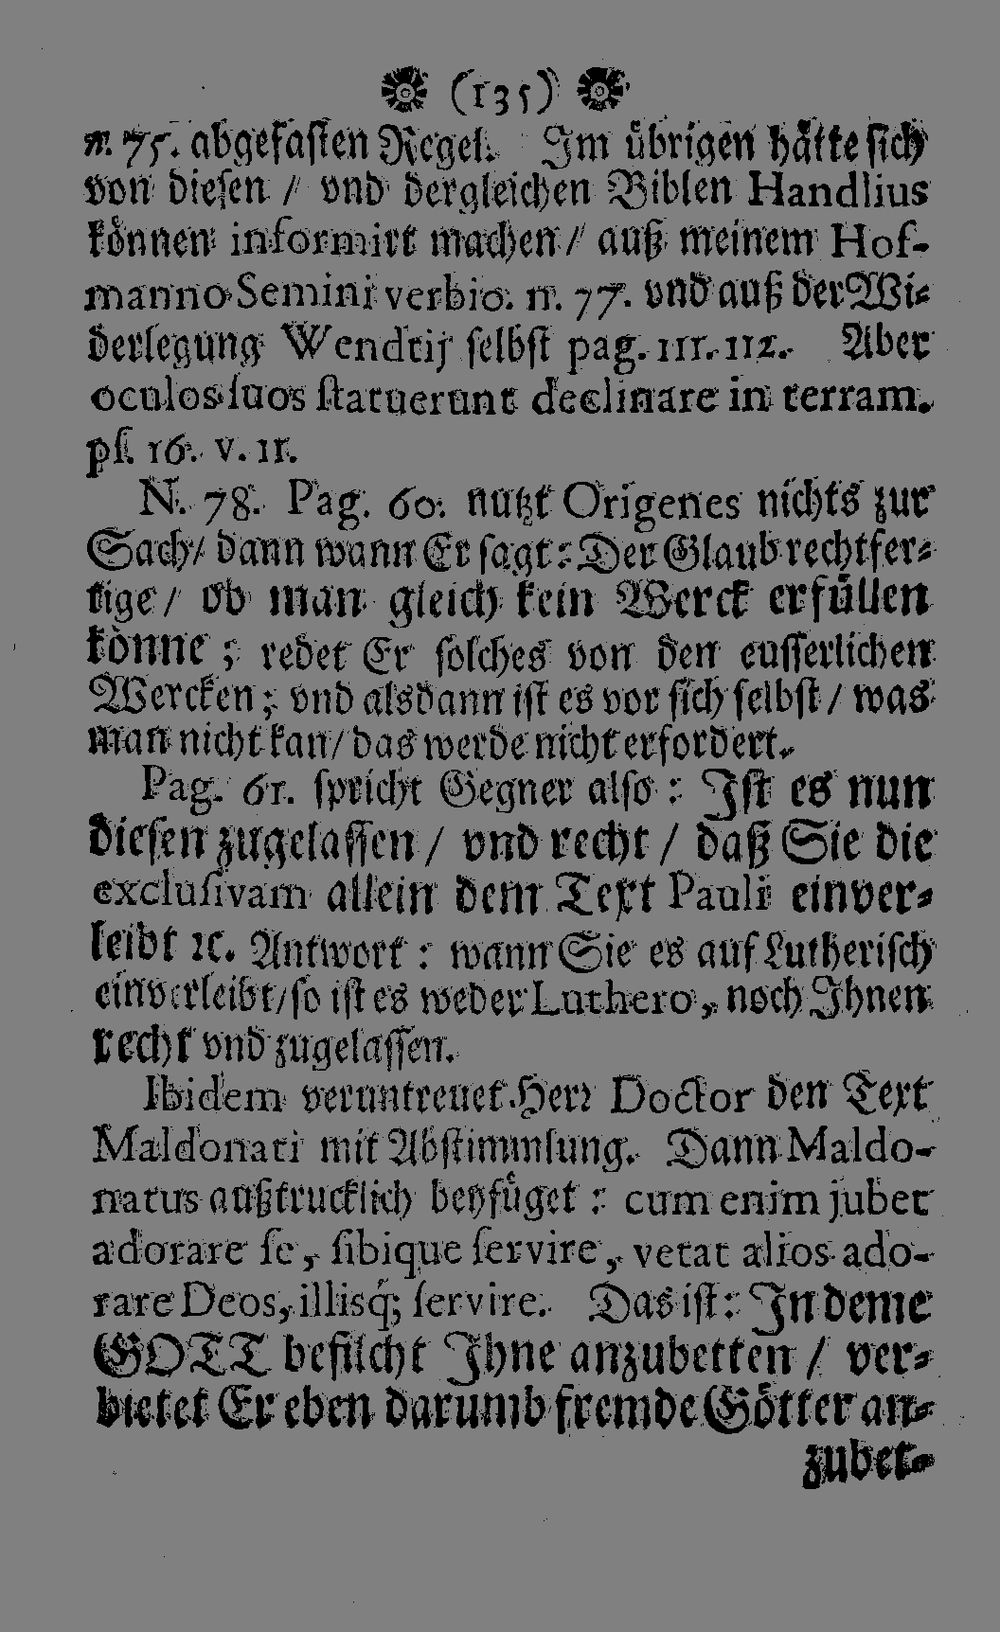 (135)
n. 75. abgefasten Regel. Im übrigen hätte sich
von diesen / vnd dergleichen Biblen Handlius
können informirt machen / auß meinem Hof-
manno Semini verbio. n. 77. vnd auß der Wi-
derlegung Wendtij selbst pag. 111. 112. Aber
oculos suos statuerunt declinare in terram.
ps. 16. v. 11.
N. 78. Pag. 60. nutzt Origenes nichts zur
Sach / dann wann Er sagt: Der Glaub rechtfer-
tige / ob man gleich kein Werck erfüllen
könne; redet Er solches von den eusserlichen
Wercken; vnd alsdann ist es vor sich selbst / was
man nicht kan / das werde nicht erfordert.
Pag. 61. spricht Gegner also: Ist es nun
diesen zugelassen / vnd recht / daß Sie die
exclusivam allein dem Text Pauli einver-
leibt ꝛc. Antwort: wann Sie es auf Lutherisch
einverleibt / so ist es weder Luthero, noch Ihnen
recht vnd zugelassen.
Ibidem veruntreuet Herr Doctor den Text
Maldonati mit Abstimmlung. Dann Maldo-
natus außtrucklich beyfüget: cum enim jubet
adorare se, sibique servire, vetat alios ado-
rare Deos, illisq; servire. Das ist: In deme
GOTT befilcht Ihne anzubetten / ver-
bietet Er eben darumb fremde Götter an-
zubet-